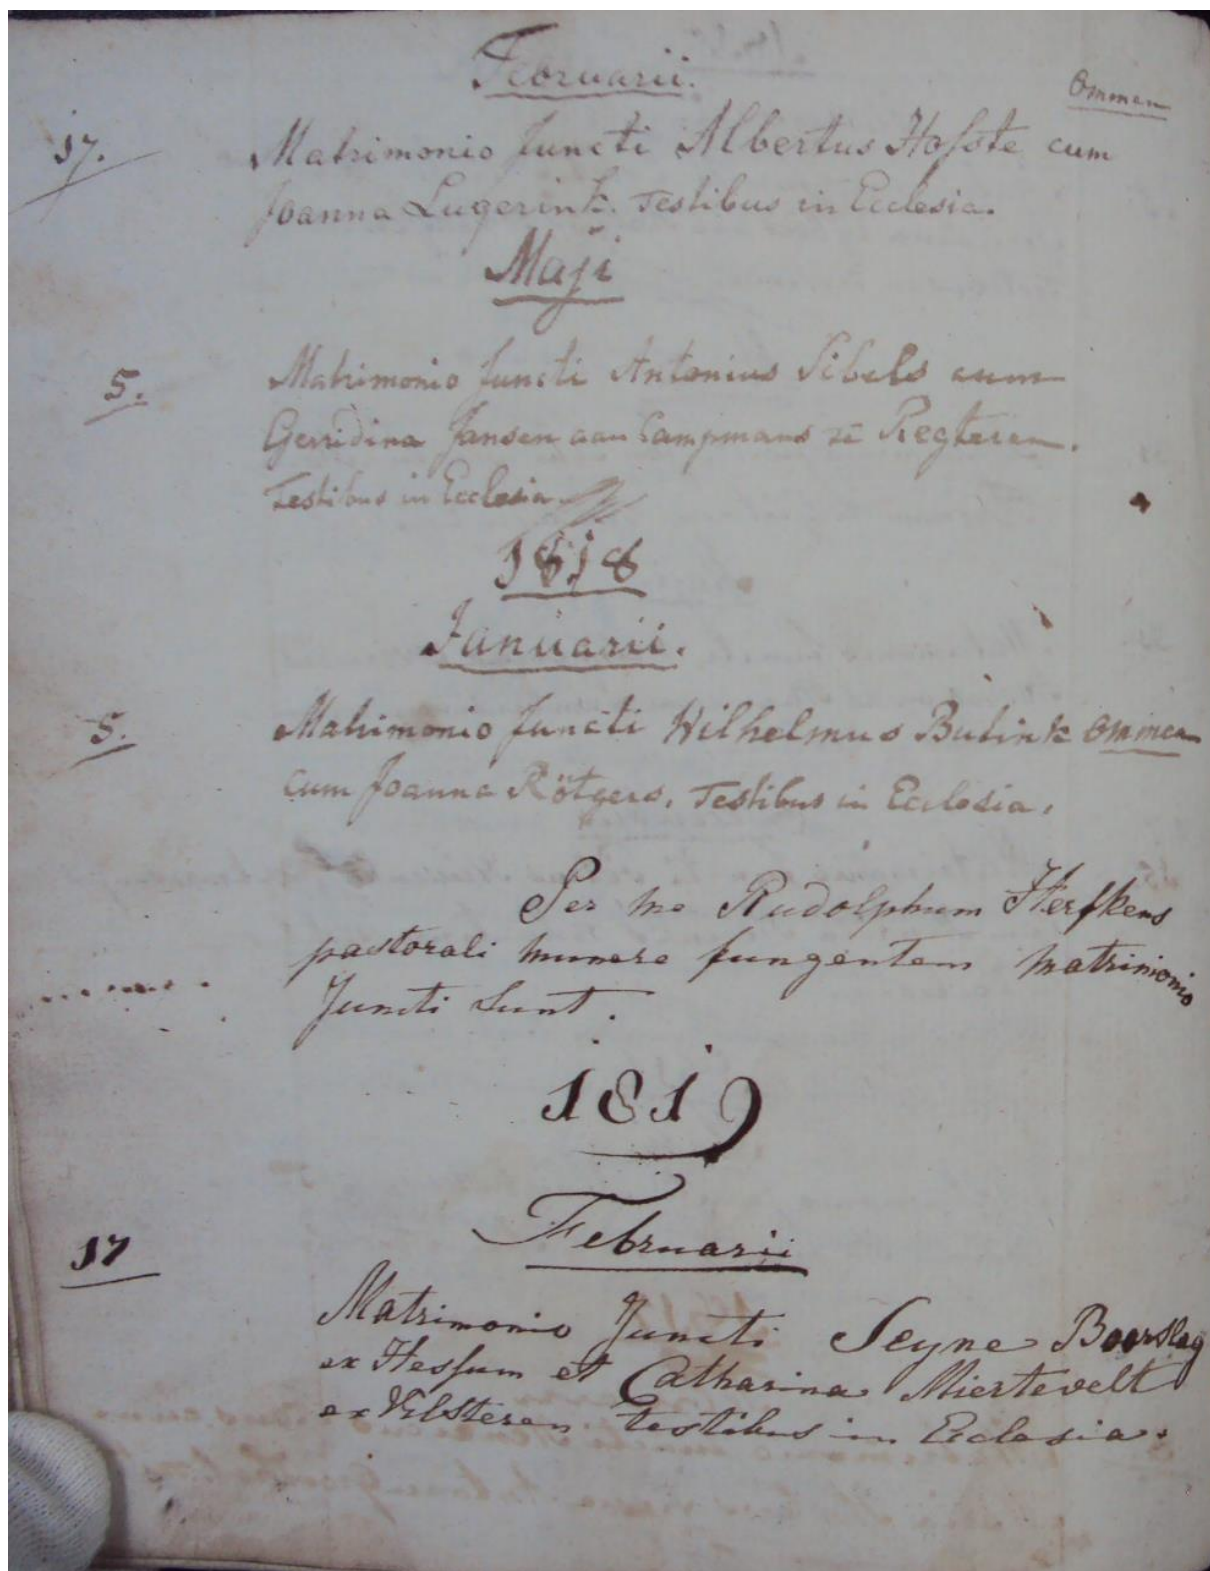 Februarii.
Ommen
17. Matrimonio Juncti Albertus Hofste cum
Joanna Lugerink. Testibus in Ecclesia.
Maji
5. Matrimonio Juncti Antonius Sibels cum
Gerridina Jansen aan Campmans Regteren.
Testibus in Ecclesia
1818
Januarii.
5. Matrimonio Juncti Wilhelmus Butink Ommen
cum Joanna Rötgers, Testibus in Ecclesia.
Per me Rudolphum Herfkens
pastorali munere fungentem matrimonio
Juncti Sunt.
1819
Februarii
17
Matrimonio Juncti Seyne Boerslag
ex Hessum et Catharina Miertevelt
ex Vilsteren testibus in Ecclesia.